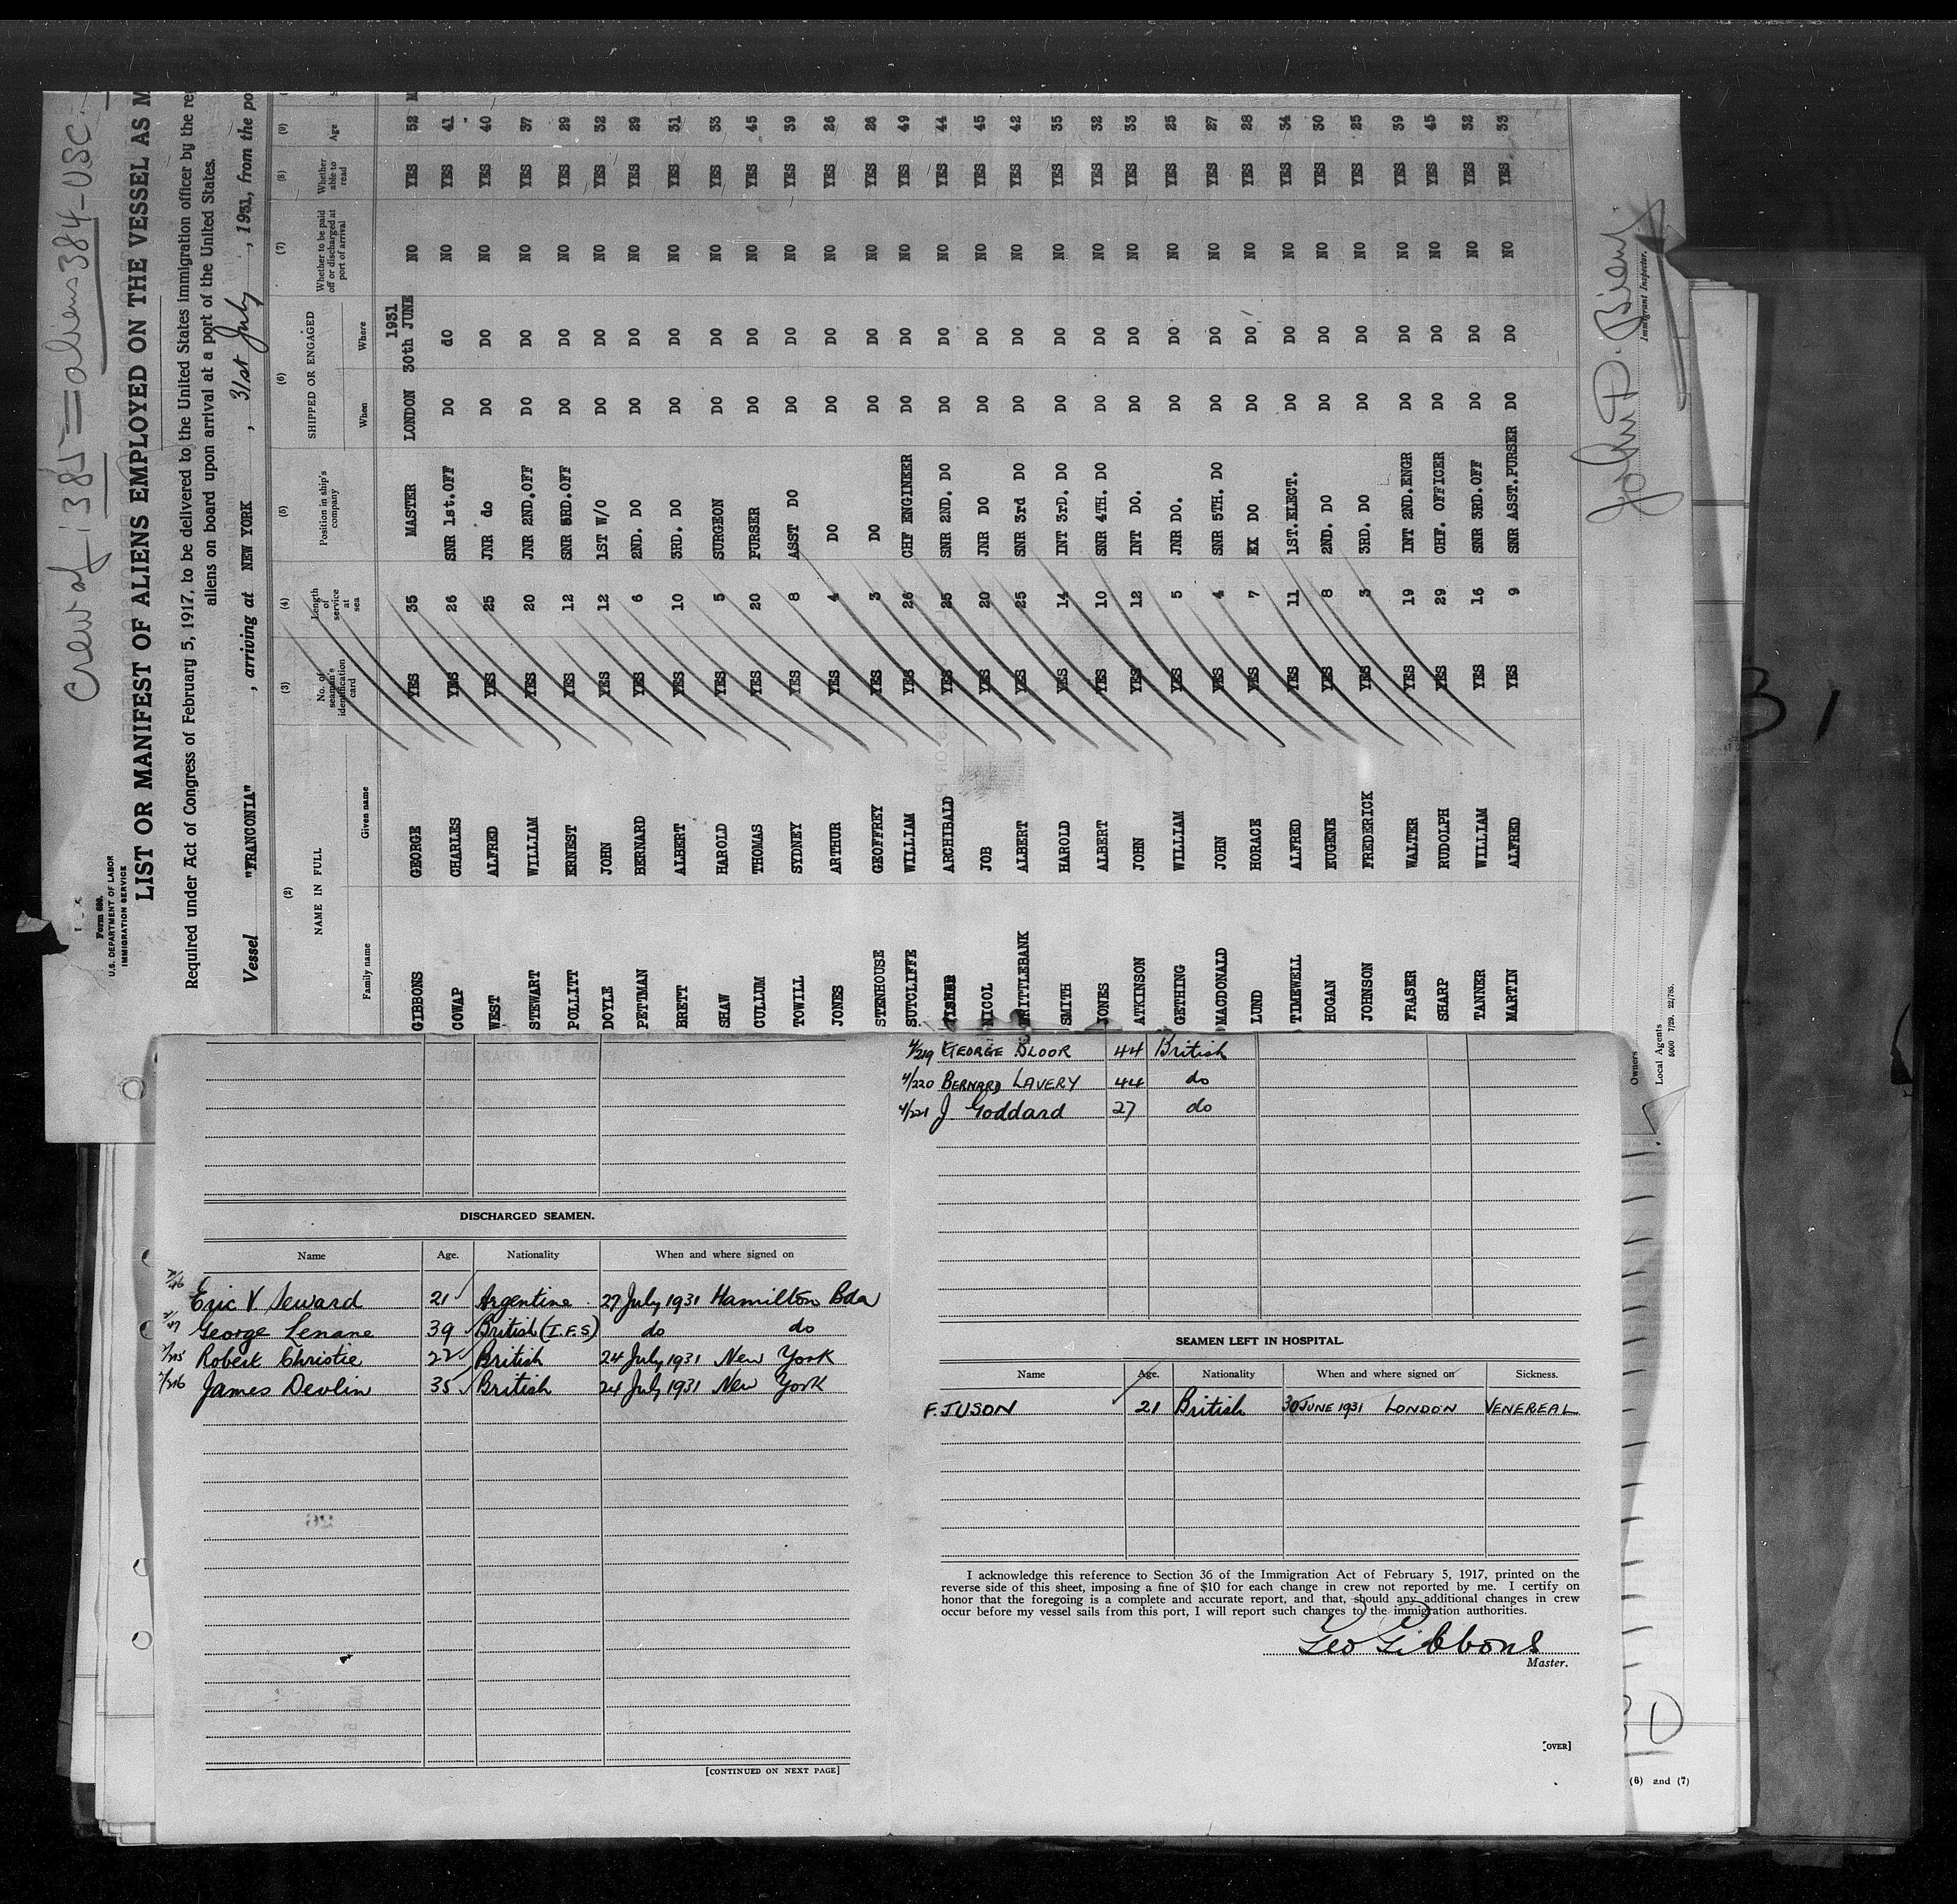 Crew of 1385 = aliens 384 - USC.
Form 680.
U.S. DEPARTMENT OF LABOR
IMMIGRATION SERVICE
LIST OR MANIFEST OF ALIENS EMPLOYED ON THE VESSEL AS M
Required under Act of Congress of February 5, 1917, to be delivered to the United States immigration officer by the re
aliens on board upon arrival at a port of the United States.
Vessel "FRANCONIA", arriving at NEW YORK, 31st July, 1931, from the po
(2) (3) (4) (5) (6) (7) (8) (9)
NAME IN FULL No. of seaman's identification card Length of service at sea Position in ship's company SHIPPED OR ENGAGED Whether to be paid off or discharged at port of arrival Whether able to read Age
Family name Given name When Where
1931
GIBBONS GEORGE YES 35 MASTER LONDON 30th JUNE NO YES 52 M
COWAP CHARLES YES 26 SNR 1st.OFF DO do NO YES 41
WEST ALFRED YES 25 JNR do DO DO NO YES 40
STEWART WILLIAM YES 20 JNR 2ND.OFF DO DO NO YES 37
POLLITT ERNEST YES 12 SNR 3RD.OFF DO DO NO YES 29
DOYLE JOHN YES 12 1ST W/O DO DO NO YES 32
PETTMAN BERNARD YES 6 2ND. DO DO DO NO YES 29
BRETT ALBERT YES 10 3RD. DO DO DO NO YES 31
SHAW HAROLD YES 5 SURGEON DO DO NO YES 33
CULLUM THOMAS YES 20 PURSER DO DO NO YES 45
TOWILL SYDNEY YES 8 ASST DO DO DO NO YES 39
JONES ARTHUR YES 4 DO DO DO NO YES 26
STENHOUSE GEOFFREY YES 3 DO DO DO NO YES 26
SUTCLIFFE WILLIAM YES 26 CHF ENGINEER DO DO NO YES 49
FISHER ARCHIBALD YES 25 SNR 2ND. DO DO DO NO YES 44
NICOL JOB YES 20 JNR DO DO DO NO YES 45
BRITTLEBANK ALBERT YES 25 SNR 3rd DO DO DO NO YES 42
SMITH HAROLD YES 14 INT 3rD. DO DO DO NO YES 35
JONES ALBERT YES 10 SNR 4TH. DO DO DO NO YES 32
ATKINSON JOHN YES 12 INT DO. DO DO NO YES 33
GETHING WILLIAM YES 5 JNR DO. DO DO NO YES 25
MACDONALD JOHN YES 4 SNR 5TH. DO DO DO NO YES 27
LUND HORACE YES 7 EX DO DO DO NO YES 28
TIMEWELL ALFRED YES 11 1ST.ELECT. DO DO NO YES 34
HOGAN EUGENE YES 8 2ND. DO DO DO NO YES 30
JOHNSON FREDERICK YES 3 3RD. DO DO DO NO YES 25
FRASER WALTER YES 19 INT 2ND.ENGR DO DO NO YES 39
SHARP RUDOLPH YES 29 CHF. OFFICER DO DO NO YES 45
TANNER WILLIAM YES 16 SNR 3RD.OFF DO DO NO YES 32
MARTIN ALFRED YES 9 SNR ASST.PURSER DO DO NO YES 33
Immigrant Inspector.
Owners
Local Agents
5000 7/29. 22/785.
31
DISCHARGED SEAMEN.
Name Age. Nationality When and where signed on
Eric V Seward 21 Argentine 27 July 1931 Hamilton Bda
George Lenane 39 British (I.F.S) do do
Robert Christie 22 British 24 July 1931 New York
James Devlin 35 British 24 July 1931 New York
[CONTINUED ON NEXT PAGE]
4/219 GEORGE BLOOR 44 British
4/220 BERNARD LAVERY 44 do
4/221 J Goddard 27 do
SEAMEN LEFT IN HOSPITAL.
Name Age. Nationality When and where signed on Sickness.
F. JUSON 21 British 30 JUNE 1931 LONDON VENEREAL
I acknowledge this reference to Section 36 of the Immigration Act of February 5, 1917, printed on the
reverse side of this sheet, imposing a fine of $10 for each change in crew not reported by me. I certify on
honor that the foregoing is a complete and accurate report, and that, should any additional changes in crew
occur before my vessel sails from this port, I will report such changes to the immigration authorities.
Geo Gibbons
Master.
[OVER]
(6) and (7)